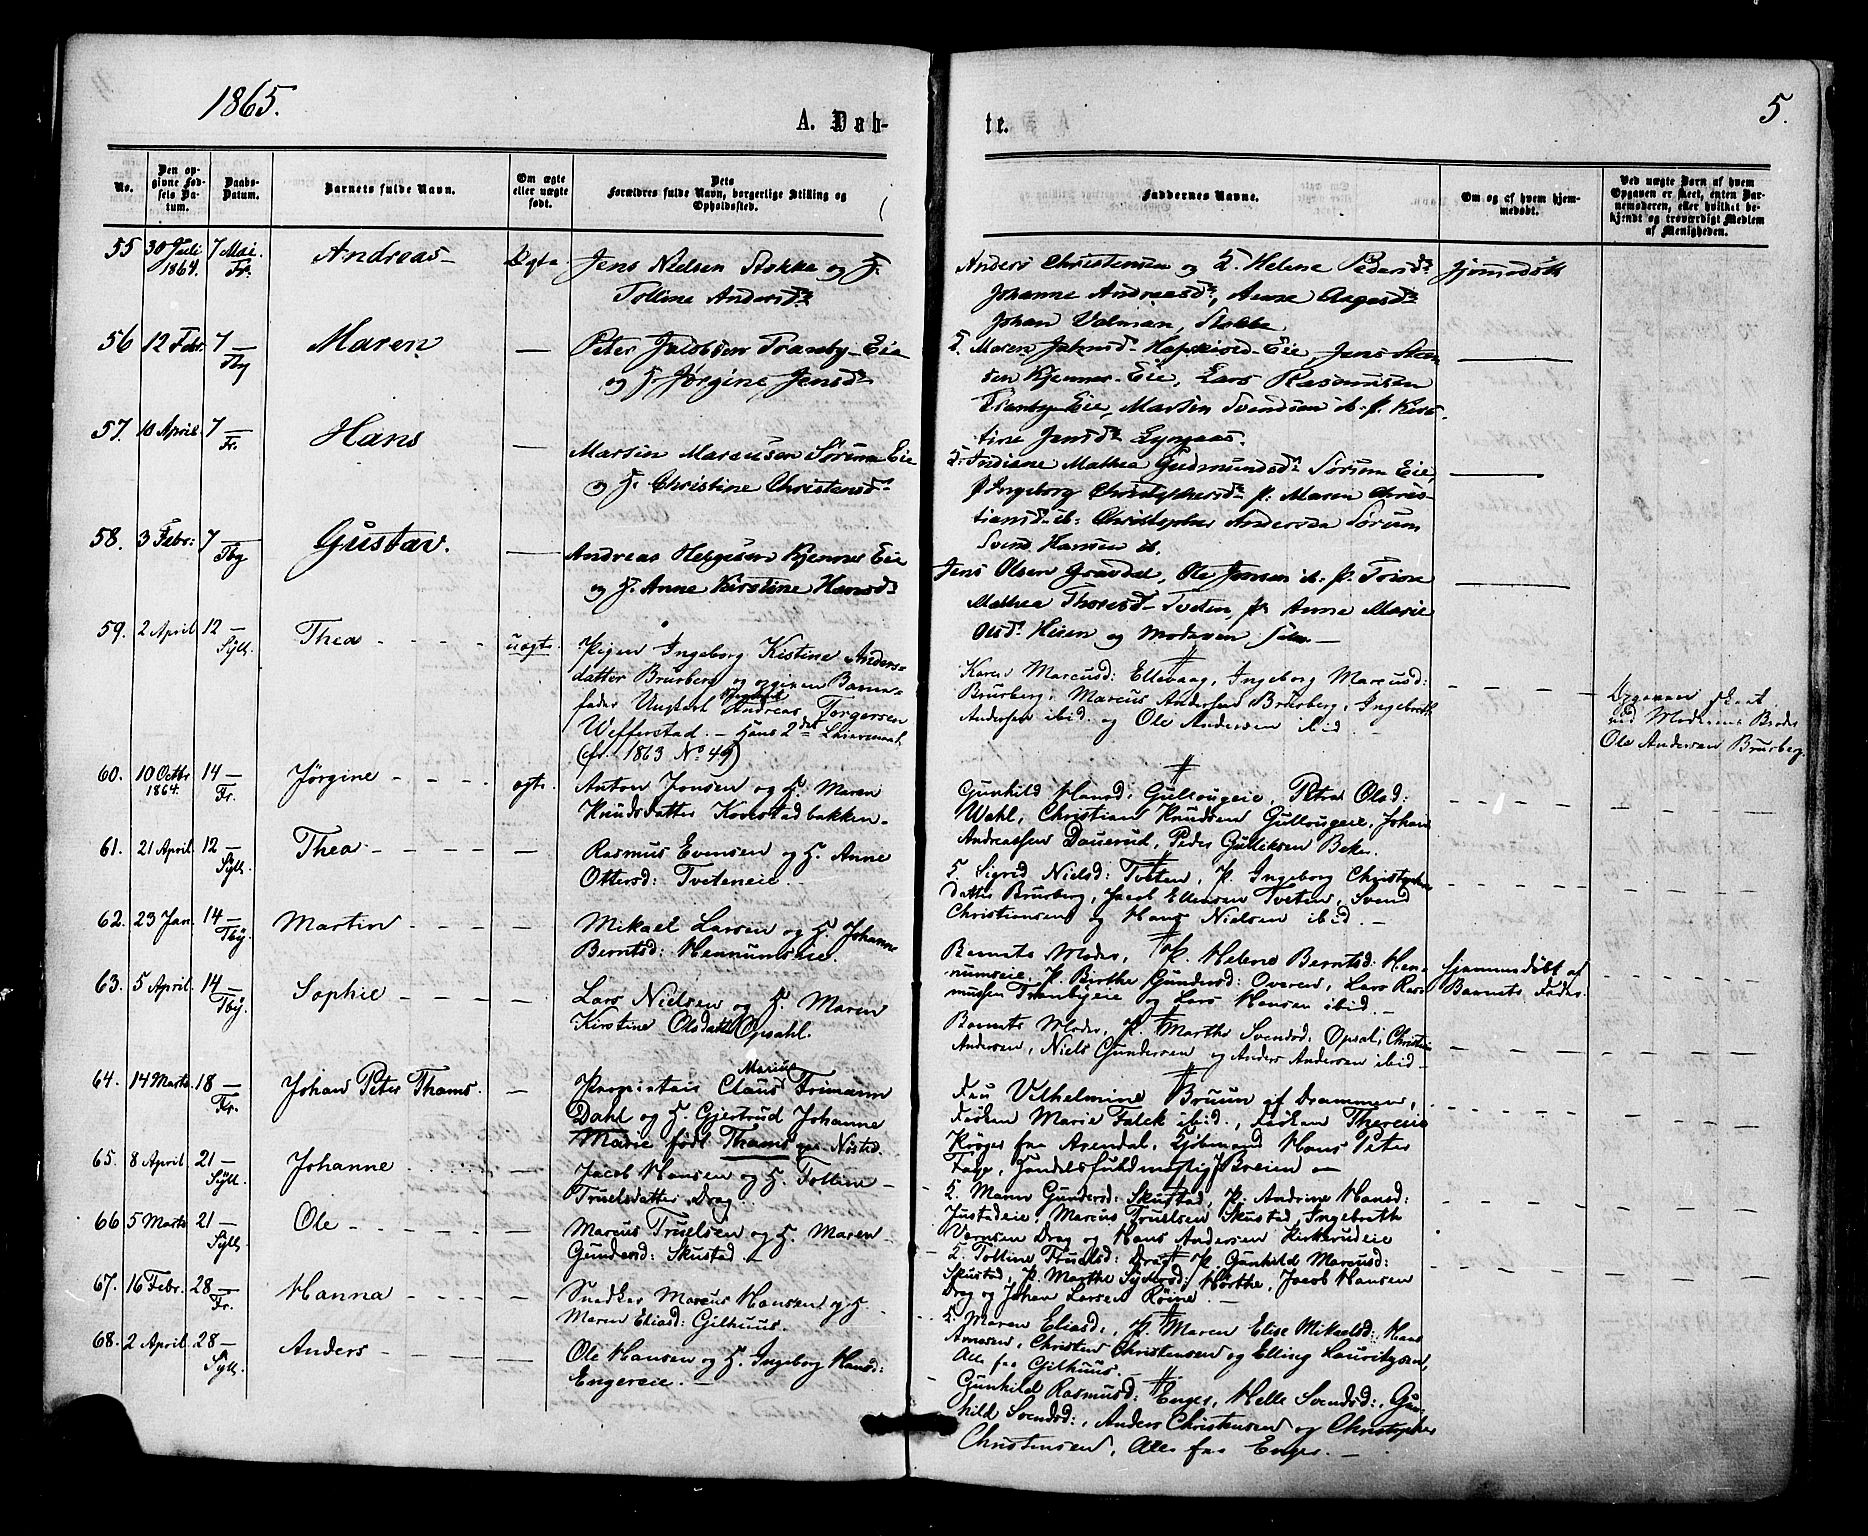 1865.
A. Døb-
te.
5.
No.
Den op-
givne Fød-
sels Da-
tum.
Daabs-
Datum.
Barnets fulde Navn.
Om ægte
eller uægte
født.
Dets
Forældres fulde Navn, borgerlige Stilling og
Opholdssted.
Faddernes Navne.
Om og af hvem hjem-
medøbt.
Ved uægte Barn af hvem
Opgaven er skeet, enten Bar-
nemoderen, eller hvilket be-
kjendt og troværdigt Medlem
af Menigheden.
55 30 Juli 1864. 7 Mai. Fr. Andreas Ægte
Jens Nielsen Stokke og H.
Tolline Andersd.
Anders Christensen og H. Helene Pedersd.
Johanne Andreasd., Anne Aagesd.
Johan Valman, Stokke
hjemmedøbt
56 12 Febr. 7 — Tby Maren —
Peter Jacobsen Tranby-Eie
og H. Jørgine Jensd.
H. Maren Eie, Jens
sen Kjenner-Eie, Lars Rasmusen
Tranby-Eie, Marten Svendsen ib. P. Kirs-
tine Jensd. Lyngaas.
57. 10 April. 7 — Fr. Hans —
Martin Marcusen Sørum Eie
og H. Christine Christensd.
H. Indiane Mathea Gudmundsd. Sørum Eie,
P. Ingeborg Christophersd. P. Maren Chris-
tiansd. ib. Christopher Andersen Sørum
Svend Hansen ib.
58. 3 Febr: 7 — Tby Gustav. —
Andreas Helgesen Kjenner Eie
og H. Anne Kirstine Hansd.
Jens Olsen Gravdal, Ole Jensen ib: P. Trine
Mathea Thoresd. Tveten, P. Anne Marie
Olsd. Heien og Moderen selv. —
59. 2 April 12 — Syll. Thea - - - uægte.
Pigen Ingeborg Kistine Anders-
datter Brurberg og opgiven Barne-
fader Ungkarl Andreas Torgersen
Wefferstad. — Hans 2det Leiermaal
(cfr. 1863 No 49)
Karen Marcusd: Ellevaag, Ingeborg Marcusd:
Brurberg, Marcus Andersen Brurberg, Ingebreth
Andersen ibid. og Ole Andersen ibid —
Opgaven skeet
ved Moderens Broder
Ole Andersen Brurberg.
60. 10 Octbr 1864. 14 — Fr. Jørgine - - - ægte.
Anton Jensen og H. Maren
Knudsdatter Korstadbakken —
Gunhild Hansd: Gullougeie, Petra Olsd:
Wahl, Christian Knudsen Gullougeie, Johan
Andreassen Dauerud, Peder Gulliksen Beker.
61. 21 April. 12 — Syll. Thea - - - —
Rasmus Evensen og H. Anne
Ottersd: Tveteneie —
H. Sigrid Nielsd: Tveten, P. Ingeborg Christopher-
datter Brurberg, Jacob Ellensen Tveten, Svend
Christiansen og Hans Nielsen ibid. —
62. 23 Jan. 14 — Tby. Martin - - - —
Mikael Larsen og H. Johanne
Berntsd: Hennumseie.
Barnets Moder, P. Helene Berntsd: Hen-
numseie, P. Birthe Gundersd: Overen, Lars Ras-
mussen Tranbyeie og Lars Hansen ibid. —
Hjemmedøbt af
Barnets Fader.
63. 5 April. 14 — Tby. Sophie - - - —
Lars Nielsen og H. Maren
Kirstine Olsdatter Opsahl.
Barnets Moder, P. Marthe Svendsd: Opsal, Christian
Andersen, Niels Gundersen og Anders Andersen ibid —
64. 14 Marts. 18 — Fr. Johan Peter Thams. —
Proprietair Claus Marius Frimann
Dahl og H. Gjertrud Johanne
Marie født Thams paa Nøsted.
Fru Vilhelmine Bruun af Drammen,
Frøken Marie Falck ibid., Frøken Therese
Krøger fra Arendal, Kjøbmand Hans Peter
Faye, Handelsfuldmægtig J Breien —
65. 8 April. 21 — Syll. Johanne - - - —
Jacob Hansen og H. Tolline —
Truelsdatter Drag.
H. Maren Gundersd: Skustad, P. Andrine Hansd:
Justadeie, Marcus Truelsen Skustad, Ingebreth
Drag og Hans Andersen Kirkerudeie
66 5 Marts. 21 — Syll. Ole - - - —
Marcus Truelsen og H. Maren —
Gundersd: Skustad —
H. Tolline Truelsd: Drag, P. Gunhild Marcusd:
Skustad, P. Marthe Horthe, Jacob Hansen
Drag og Johan Larsen Røine. —
67. 16 Febr. 28 — Fr. Hanna - - - —
Snedker Marcus Hansen og H. —
Maren Eliasd: Gilhuus.
H. Maren Eliasd:, P. Maren Elise Mikaelsd: Hans
Arnesen, Christen Christensen og Elling Lauritzsen,
Alle fra Gilhuus. —
68. 2 April. 28 — Syll. Anders - - - —
Ole Hansen og H. Ingeborg Hansd:
Engereie. —
Gunhild Rasmusd: Enger, Helle Svendsd:, Gun-
hild Svendsd:, Anders Christensen og Christopher
Christensen, Alle fra Enger. —